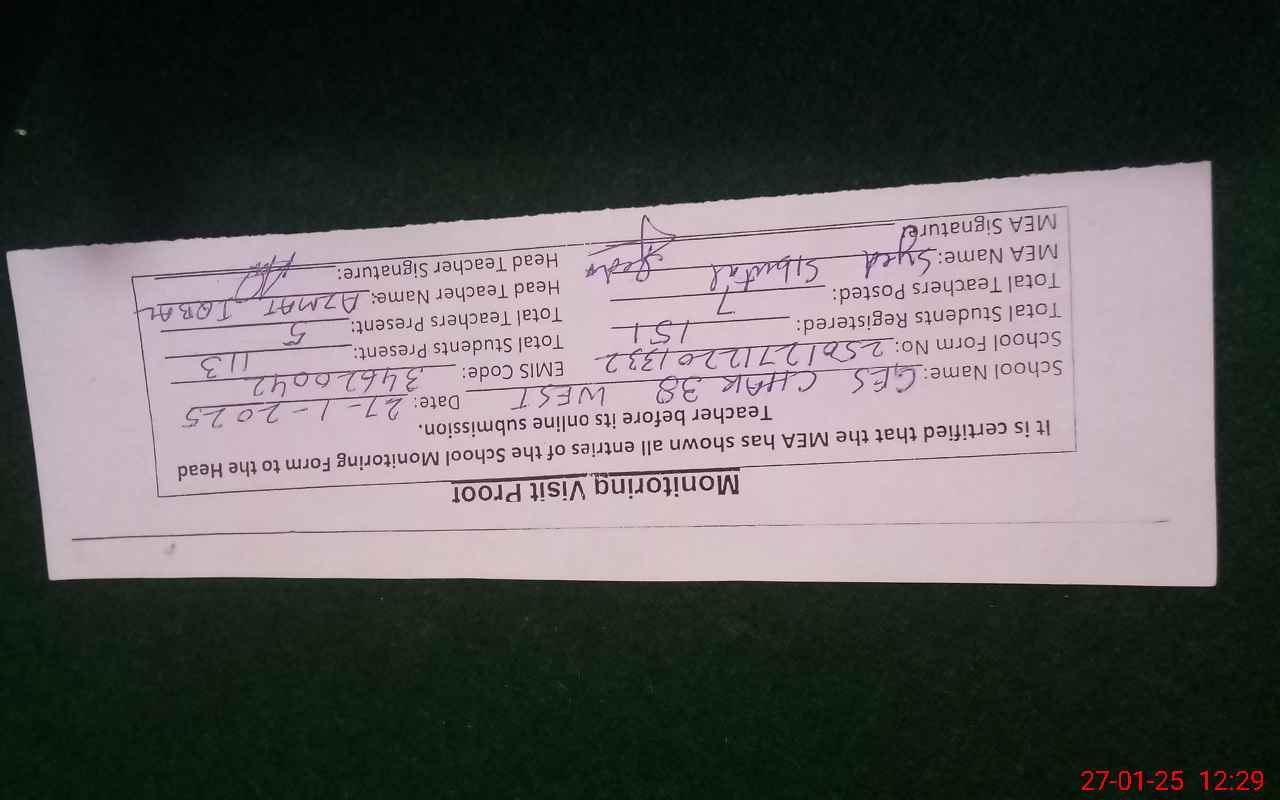 Monitoring Visit Proof
It is certified that the MEA has shown all entries of the School Monitoring Form to the Head
Teacher before its online submission.
School Name: GES CHAK 38 WEST Date: 27-1-2025
School Form No: 25012712201332 EMIS Code: 34620042
Total Students Registered: 151 Total Students Present: 113
Total Teachers Posted: 7 Total Teachers Present: 5
MEA Name: Syed Head Teacher Name: AZMAT IQBAL
MEA Signature: Head Teacher Signature:
27-01-25 12:29